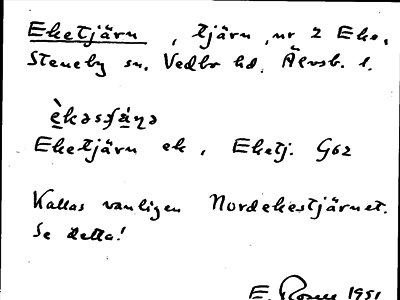 Eketjärn , tjärn , nr 2 Eke,
Steneby sn. Vedbo hd. Älvsb. l.
Eketjärn ek , Eketj. G62
Kallas vanligen Nordekestjärnet.
Se detta!
E. Rosell 1951